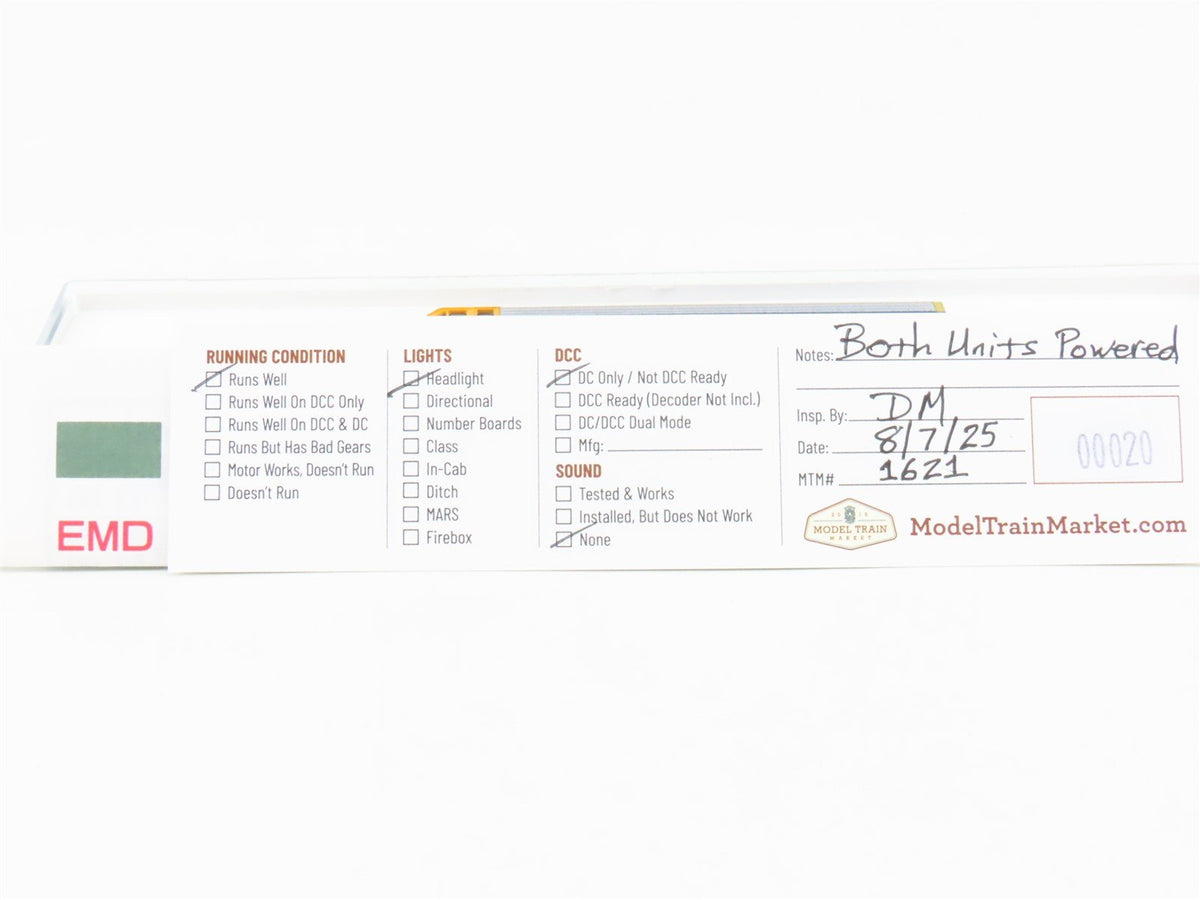 EMD
RUNNING CONDITION
Runs Well
Runs Well On DCC Only
Runs Well On DCC & DC
Runs But Has Bad Gears
Motor Works, Doesn't Run
Doesn't Run
LIGHTS
Headlight
Directional
Number Boards
Class
In-Cab
Ditch
MARS
Firebox
DCC
DC Only / Not DCC Ready
DCC Ready (Decoder Not Incl.)
DC/DCC Dual Mode
Mfg:
SOUND
Tested & Works
Installed, But Does Not Work
None
Notes: Both Units Powered
Insp. By: DM
Date: 8/7/25
MTM# 1621
00020
MODEL TRAIN
MARKET
ModelTrainMarket.com